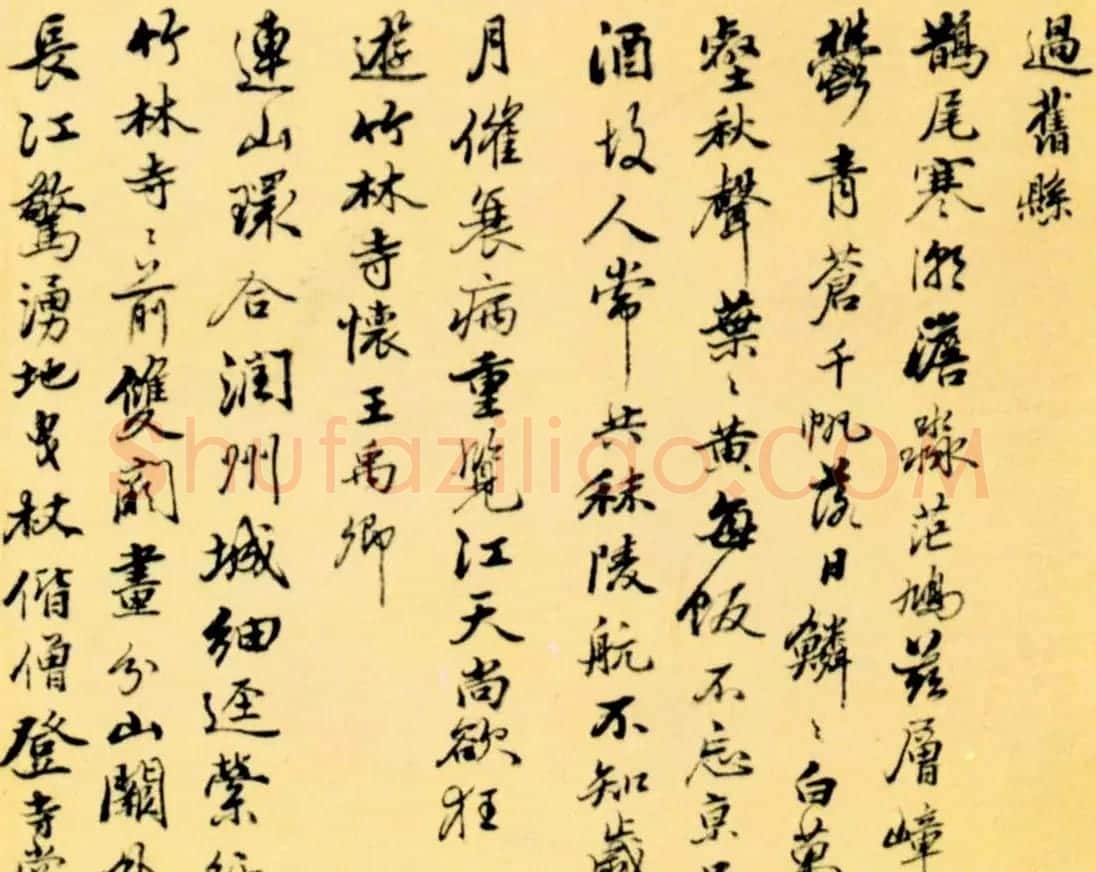 過舊縣
鵲尾寒潮澹渺茫鳩茲層嶂
鬱青蒼千帆落日鱗〻白萬
壑秋聲葉〻黃每飯不忘京
酒故人常共秣陵航不知歲
月催衰病重覽江天尚欲狂
遊竹林寺懷王禹卿
連山環合潤州城細逕縈
竹林寺〻前雙闕畫分山關外
長江驚湧地曳杖偕僧登寺
Shufaziliao.COM